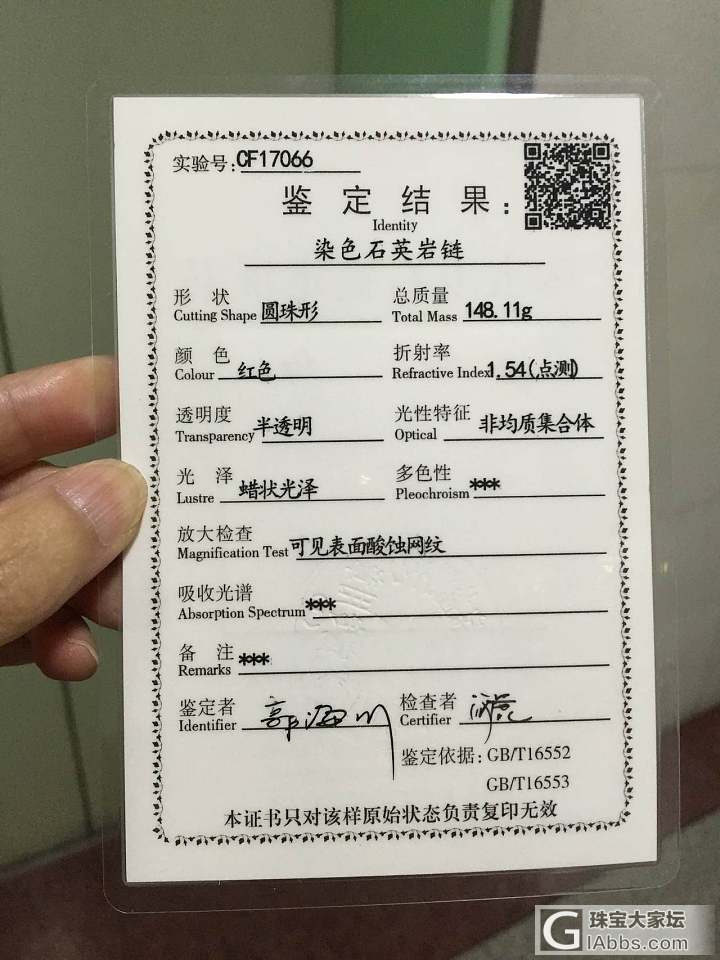 实验号:CF17066
鉴定结果:
Identity
染色石英岩链
形状 圆珠形 总质量 148.11g
Cutting Shape Total Mass
颜色 红色 折射率 1.54(点测)
Colour Refractive Index
透明度 半透明 光性特征 非均质集合体
Transparency Optical
光泽 蜡状光泽 多色性 ***
Lustre Pleochroism
放大检查 可见表面酸蚀网纹
Magnification Test
吸收光谱 ***
Absorption Spectrum
备注 ***
Remarks
鉴定者 检查者
Identifier Certifier
鉴定依据: GB/T16552
GB/T16553
本证书只对该样原始状态负责复印无效
G 珠宝大家坛
IAbbs.com